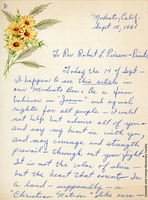 Modesto, Calif.
Sept. 15, 1961
To Rev. Robert L. Pierson
Today the 14 of Sept -
I happen to see this article in
our Modesto Bee. As a firm
believer in "Jesus" and equal
rights for all people - I could
not help but admire all of you -
and say my heart is with you,
and may courage and strength
prevail through out your fight.
It is not the color of skin -
but the heart that counts. In
a land - supposedly - a
Christian Nation. Like ours -